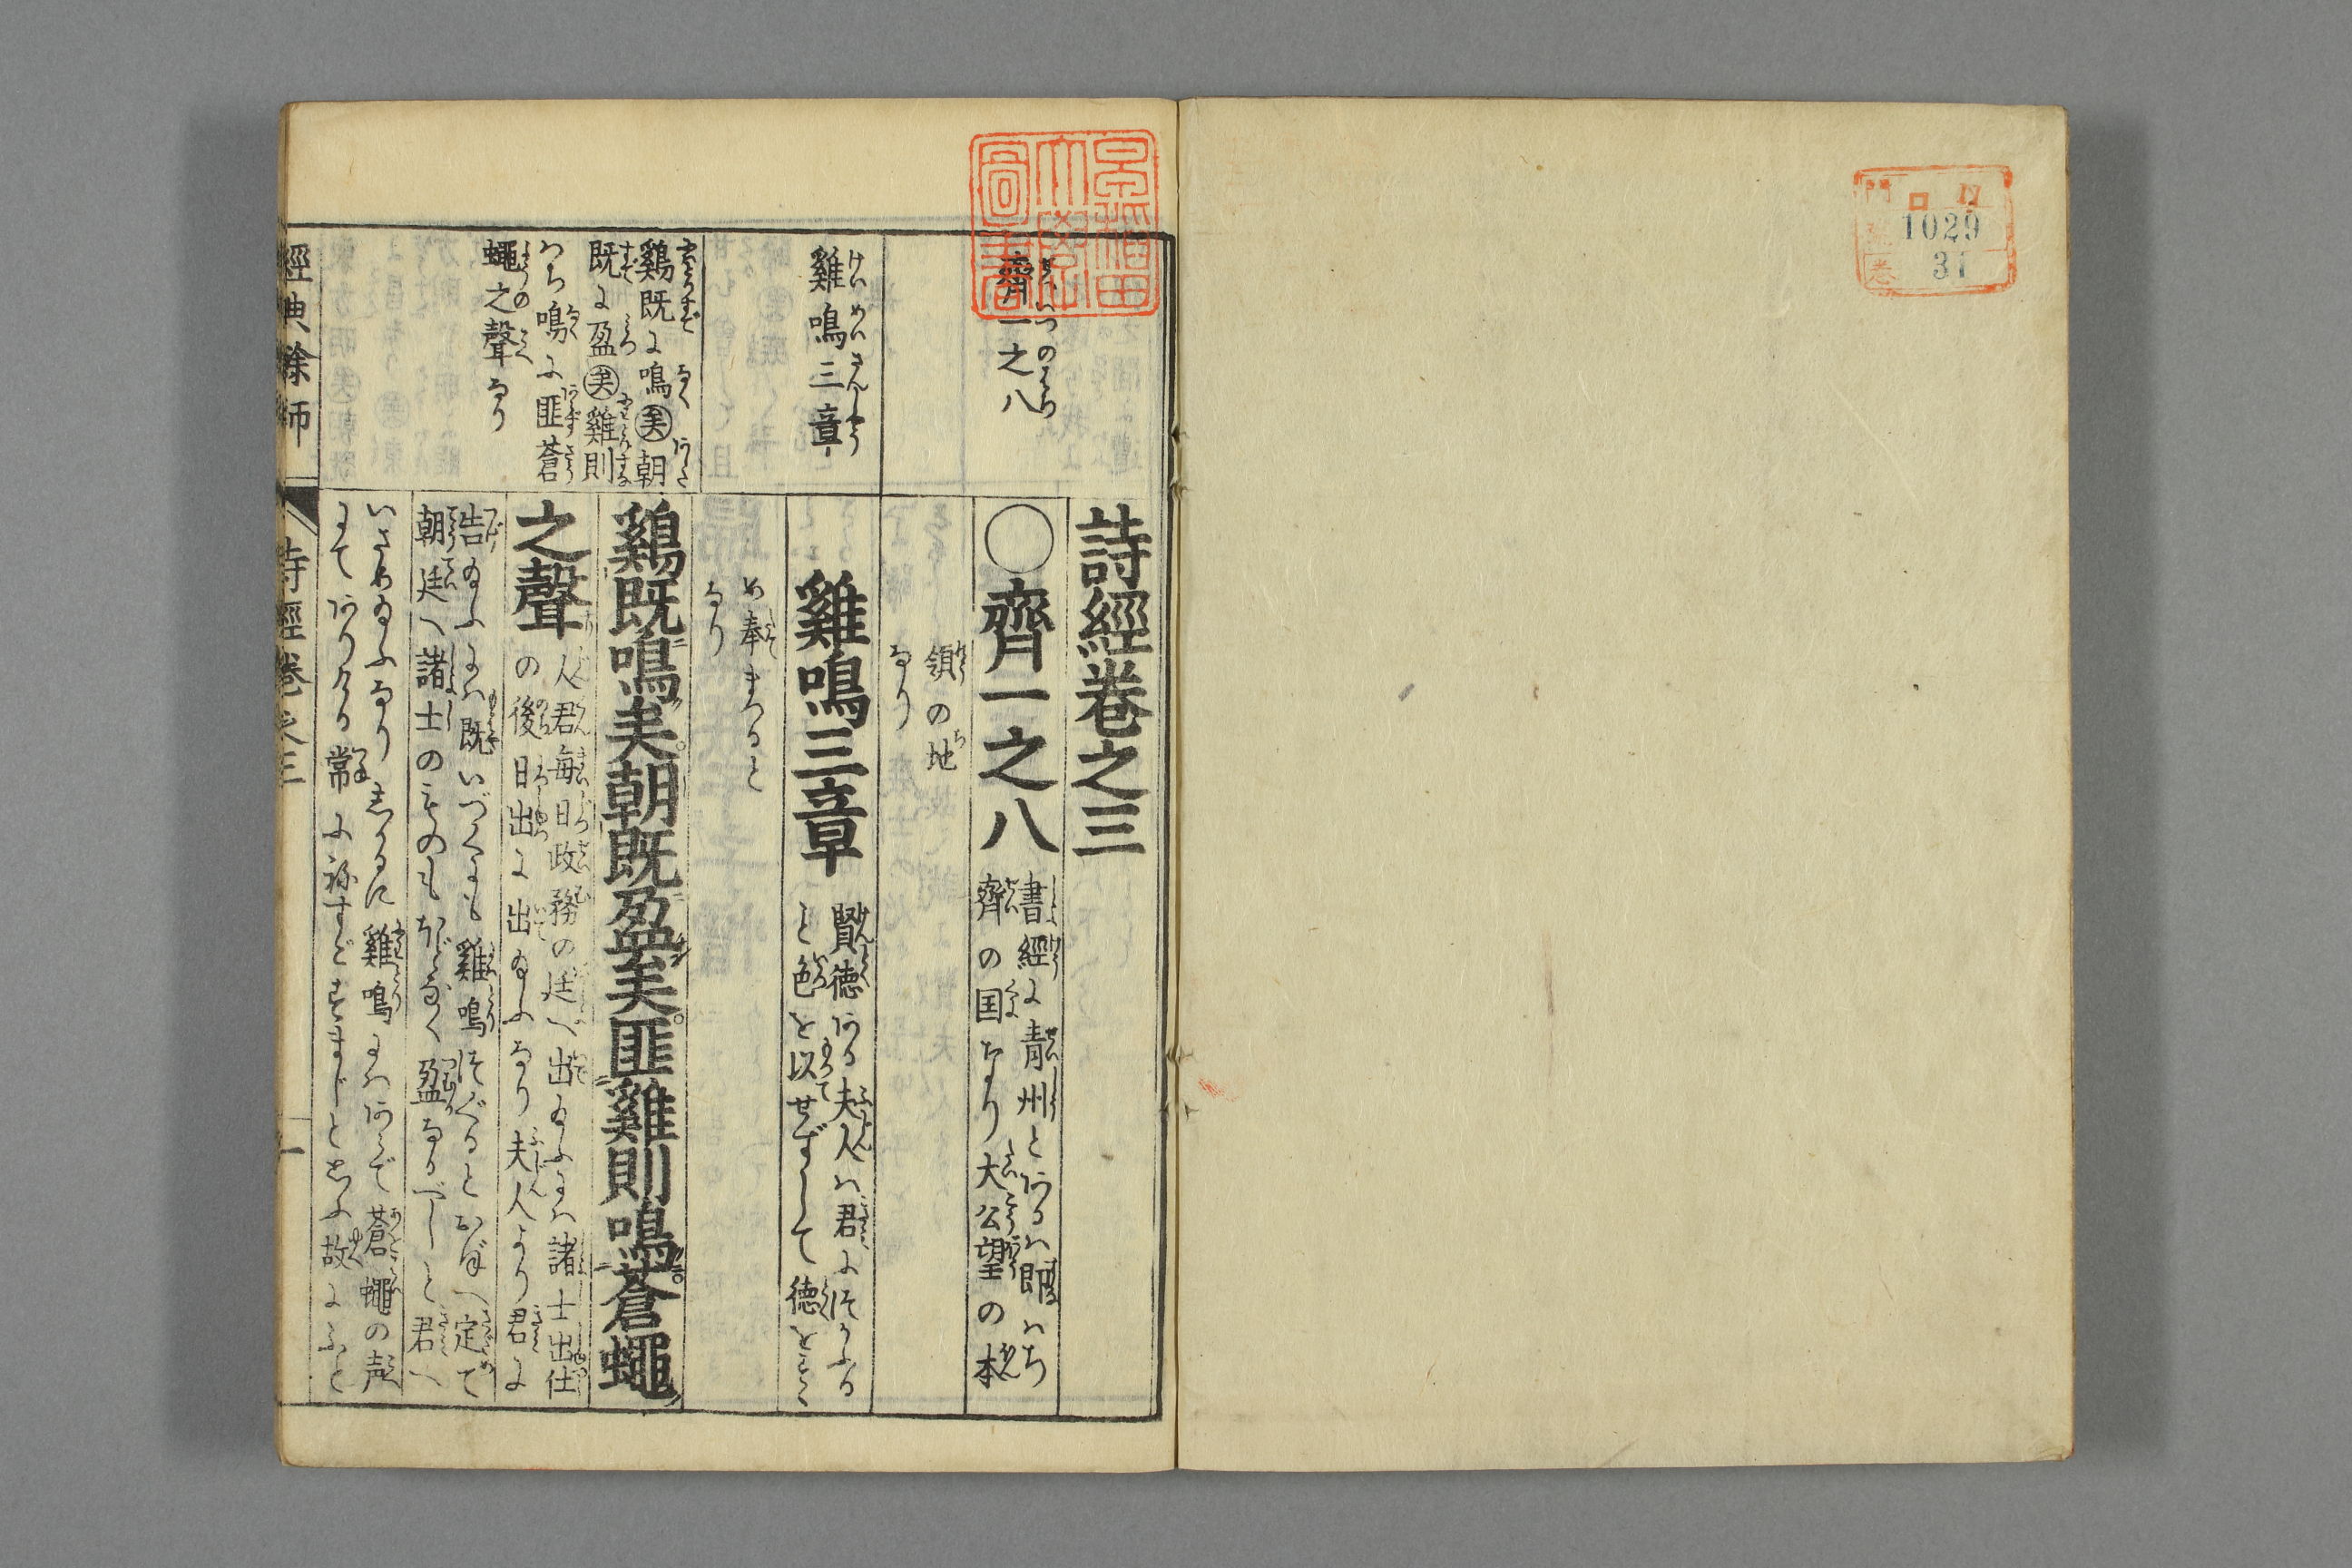 門 ロ
1029
31
卷
早稲田大學圖書
詩經卷之三
○齊一之八
書經に青州とあるは即はち
齊の国なり大公望の本
領の地
なり
雞鳴三章
賢徳ある夫人は君につかふる
と色を以せずして徳をすゝ
め奉まつると
なり
鷄既鳴矣朝既盈矣匪雞則鳴蒼蠅
之聲
人君毎日政務の廷へ出給ふには諸士出仕
の後日出に出給ふなり夫人より君に
告給ふには既いづくにも雞鳴つぐるとおぼへ定て
朝廷へ諸士のものもほどなく盈なるべしと君へ
いさめ給ふなりしかるに雞鳴にはあらで蒼蠅の声
にてありける常に
故に
齊一之八
雞鳴三章
鷄既に鳴矣朝
既に盈矣雞則
はち鳴に匪蒼
蠅之聲なり
經典餘師
詩經卷之三
一